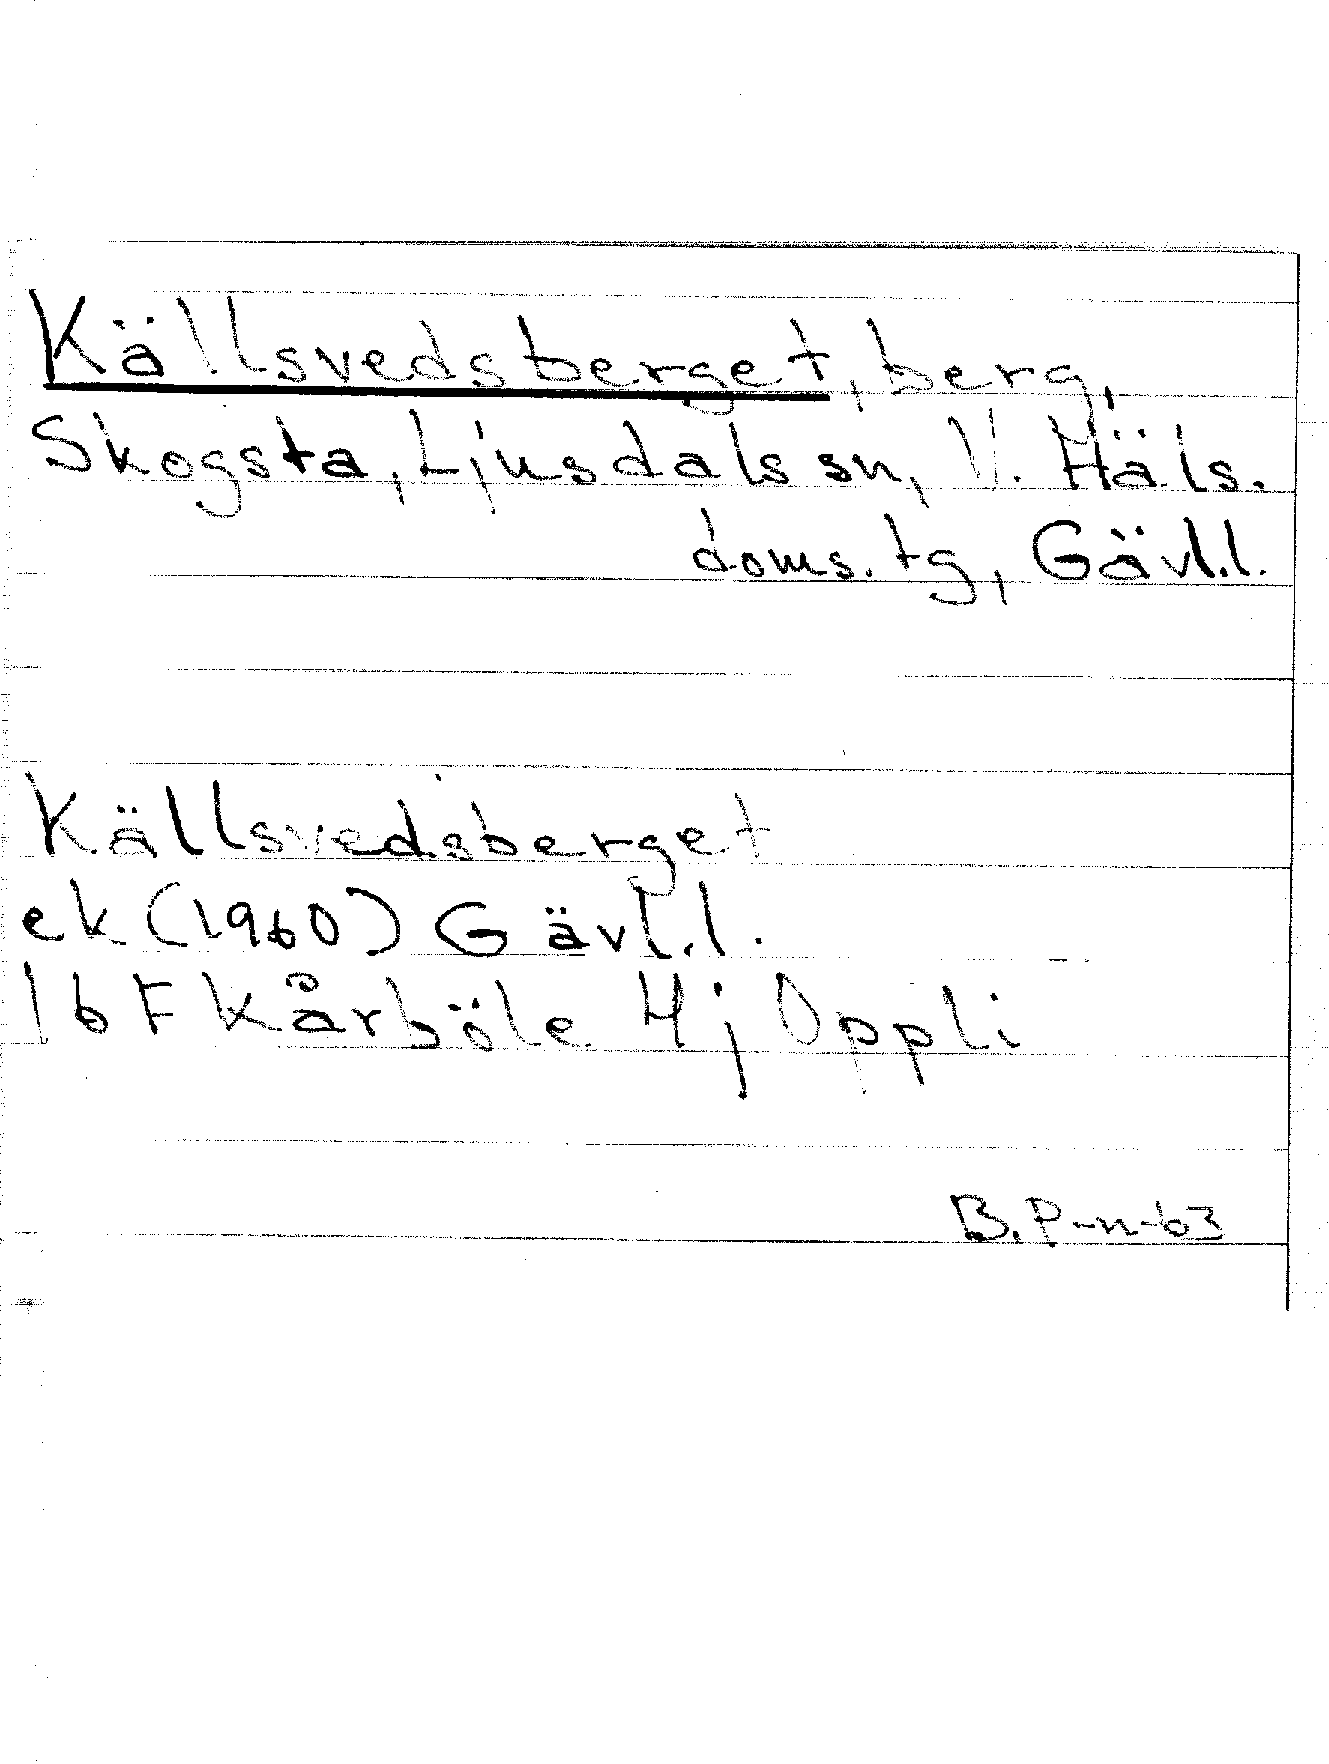 Källsvedsberget, berg,
Skogsta, Ljusdals sn, V. Häls.
doms. tg, Gävl.l.
Källsvedsberget
ek (1960) Gävl.l.
16 F Kårböle Hj Oppli
B. P-n-63